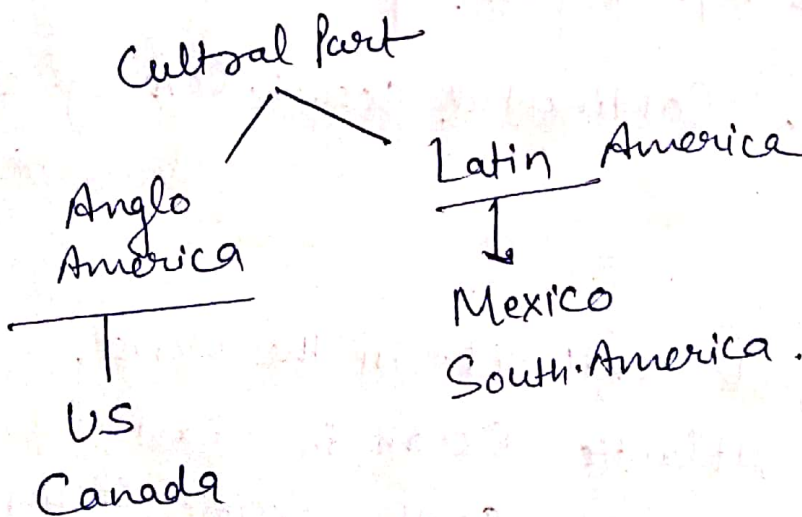 Cultral Part
Anglo
America
US
Canada
Latin America
Mexico
South America.